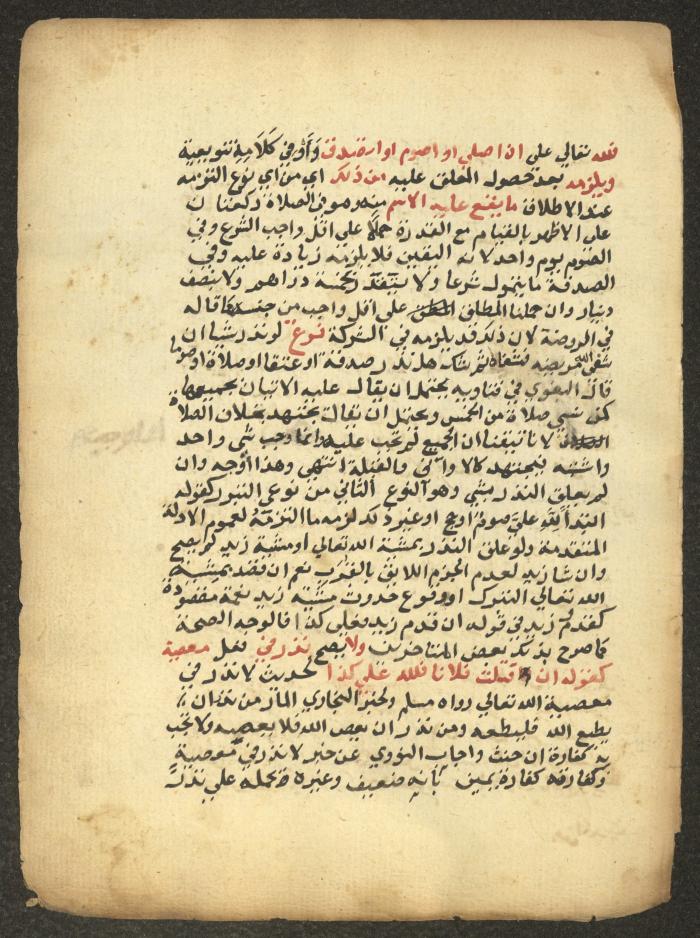 فلله تعالي علي ان اصلي او اصوم او اتصدق وَأَوْ في كَلَامِهِ تنويعية
ويلزمه بعد حصول المعلق عليه من ذلك اي من اي نوع التزمه
عند الاطلاق ما يقع عليه الاسم منه وهو في الصلاة ركعتان
علي الاظهر بالقيام مع القدرة حملا علي اقل واجب الشرع وفي
الصوم يوم واحد لانه اليقين فلا يلزمه زيادة عليه وفي
الصدقة ما يتمول شرعا ولا يتقدر بخمسة دراهم ولا بنصف
دينار وان حملنا المطلق علي اقل واجب من جنسه كما قاله
في الروضة لان ذلك قد يلزمه في الشركة فرع لو نذر شيا ان
شفي الله مريضه فشفاه ثم شك هل نذر صدقة او عتقا او صلاة او صوما
قال البغوي في فتاويه يحتمل ان يقال عليه الاتيان بجميعها
كمن نسي صلاة من الخمس ويحتمل ان يقال يجتهد بخلاف الصلاة
لانا تيقنا ان الجميع لم تجب عليه وانما وجب شي واحد
واشتبه فيجتهد كالاواني والقبلة انتهي وهذا أوجه وان
لم يعلق النذر بشي وهو النوع الثاني من نوعي التبرر كقوله
ابتداً لِلّهِ عَلَيَّ صوم او حج او غير ذلك لزمه ما التزمه لعموم الادلة
المتقدمة ولو علق النذر بمشية الله تعالي او مشية زيد لم يصح
وان شا زيد لعدم الجزم اللايق بالقرب نعم ان قصد بمشية
الله تعالي التبرك او وقوع حدوث مشية زيد نعمة مقصودة
كقدوم زيد في قوله ان قدم زيد فعلي كذا فالوجه الصحة
كما صرح بذلك بعض المتاخرين ولا يصح نذر في فعل معصية
كقوله ان قتلت فلانا فلله علي كذا لحديث لا نذر في
معصية الله تعالي رواه مسلم ولخبر البخاري المار من نذر ان
يطيع الله فليطعه ومن نذر ان يعصي الله فلا يعصيه ولا تجب
به كفارة ان حنث واجاب النووي عن خبر لا نذر في معصية
وكفارته كفارة يمين بأنه ضعيف وغيره بحمله علي نذر